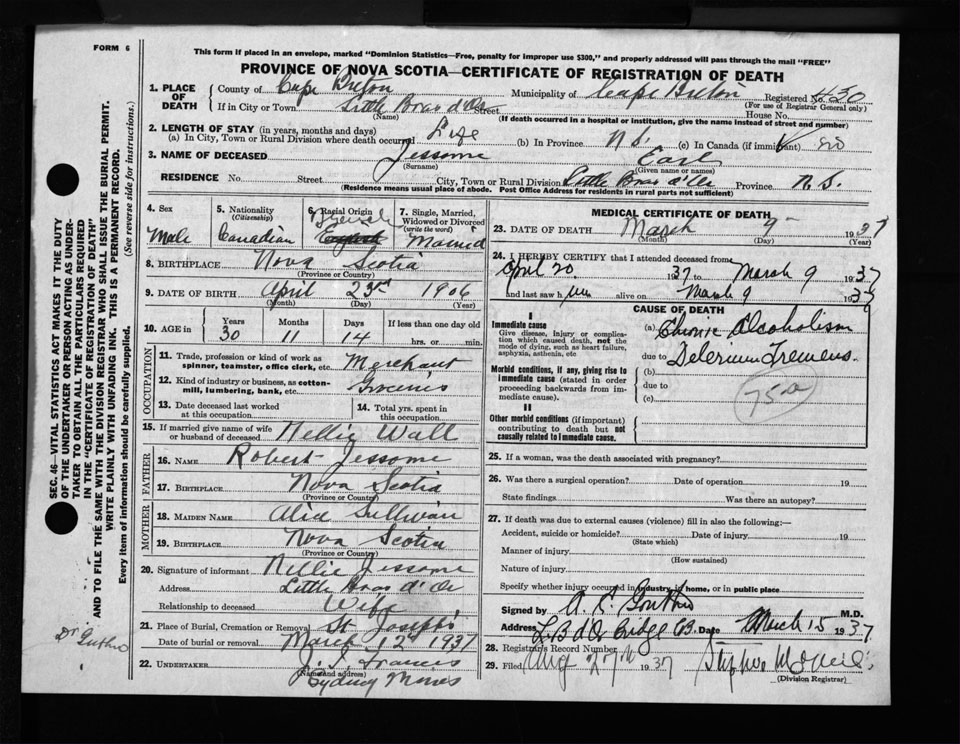 FORM 6
This form if placed in an envelope, marked "Dominion Statistics—Free, penalty for improper use $300," and properly addressed will pass through the mail "FREE"
PROVINCE OF NOVA SCOTIA—CERTIFICATE OF REGISTRATION OF DEATH
SEC. 46—VITAL STATISTICS ACT MAKES IT THE DUTY
OF THE UNDERTAKER OR PERSON ACTING AS UNDER-
TAKER TO OBTAIN ALL THE PARTICULARS REQUIRED
IN THE "CERTIFICATE OF REGISTRATION OF DEATH"
AND TO FILE THE SAME WITH THE DIVISION REGISTRAR WHO SHALL ISSUE THE BURIAL PERMIT.
WRITE PLAINLY WITH UNFADING INK. THIS IS A PERMANENT RECORD.
Every item of information should be carefully supplied. (See reverse side for instructions.)
1. PLACE OF DEATH County of Cape Breton Municipality of Cape Breton Registered No. 430
(For use of Registrar General only)
If in City or Town Little Bras d'Or Street House No.
(Name) (If death occurred in a hospital or institution, give the name instead of street and number)
2. LENGTH OF STAY (in years, months and days)
(a) In City, Town or Rural Division where death occurred Life (b) In Province (c) In Canada (if immigrant)
3. NAME OF DECEASED Jessome Earl
(Surname) (Given name or names)
RESIDENCE No. Street City, Town or Rural Division Little Bras d'Or Province N.S.
(Residence means usual place of abode. Post Office Address for residents in rural parts not sufficient)
4. Sex Male
5. Nationality (Citizenship) Canadian
6. Racial Origin French English
7. Single, Married, Widowed or Divorced (write the word) Married
8. BIRTHPLACE Nova Scotia
(Province or Country)
9. DATE OF BIRTH April 23rd 1906
(Month) (Day) (Year)
10. AGE in Years 30 Months 11 Days 14 If less than one day old hrs. or min.
OCCUPATION
11. Trade, profession or kind of work as spinner, teamster, office clerk, etc. Merchant
12. Kind of industry or business, as cotton-mill, lumbering, bank, etc. Groceries
13. Date deceased last worked at this occupation
14. Total yrs. spent in this occupation
15. If married give name of wife or husband of deceased Nellie Wall
FATHER
16. NAME Robert Jessome
17. BIRTHPLACE Nova Scotia
(Province or Country)
MOTHER
18. MAIDEN NAME Alice Sullivan
19. BIRTHPLACE Nova Scotia
(Province or Country)
20. Signature of informant Nellie Jessome
Address Little Bras d'Or
Relationship to deceased Wife
21. Place of Burial, Cremation or Removal St Joseph's
Date of burial or removal March 12 1937
22. UNDERTAKER
(Name and address)
Sydney Mines
Dr Guthro
MEDICAL CERTIFICATE OF DEATH
23. DATE OF DEATH March 9 1937
(Month) (Day) (Year)
24. I HEREBY CERTIFY that I attended deceased from
April 20 1937 to March 9 1937
and last saw him alive on March 9 1937
CAUSE OF DEATH
I
Immediate cause
Give disease, injury or complication which caused death, not the mode of dying, such as heart failure, asphyxia, asthenia, etc
Morbid conditions, if any, giving rise to immediate cause (stated in order proceeding backwards from immediate cause).
II
Other morbid conditions (if important) contributing to death but not causally related to immediate cause.
(a) Chronic Alcoholism
due to Delerium Tremens.
(b)
due to
(c)
75a
25. If a woman, was the death associated with pregnancy?
26. Was there a surgical operation? Date of operation 19
State findings Was there an autopsy?
27. If death was due to external causes (violence) fill in also the following:—
Accident, suicide or homicide? Date of injury 19
(State which)
Manner of injury
(How sustained)
Nature of injury
Specify whether injury occurred in industry, in home, or in public place
Signed by A. E. Guthro M.D.
Address L B d'Or Bridge CB. Date March 15 1937
28. Registrar's Record Number
29. Filed Aug 27th 1937
(Division Registrar)